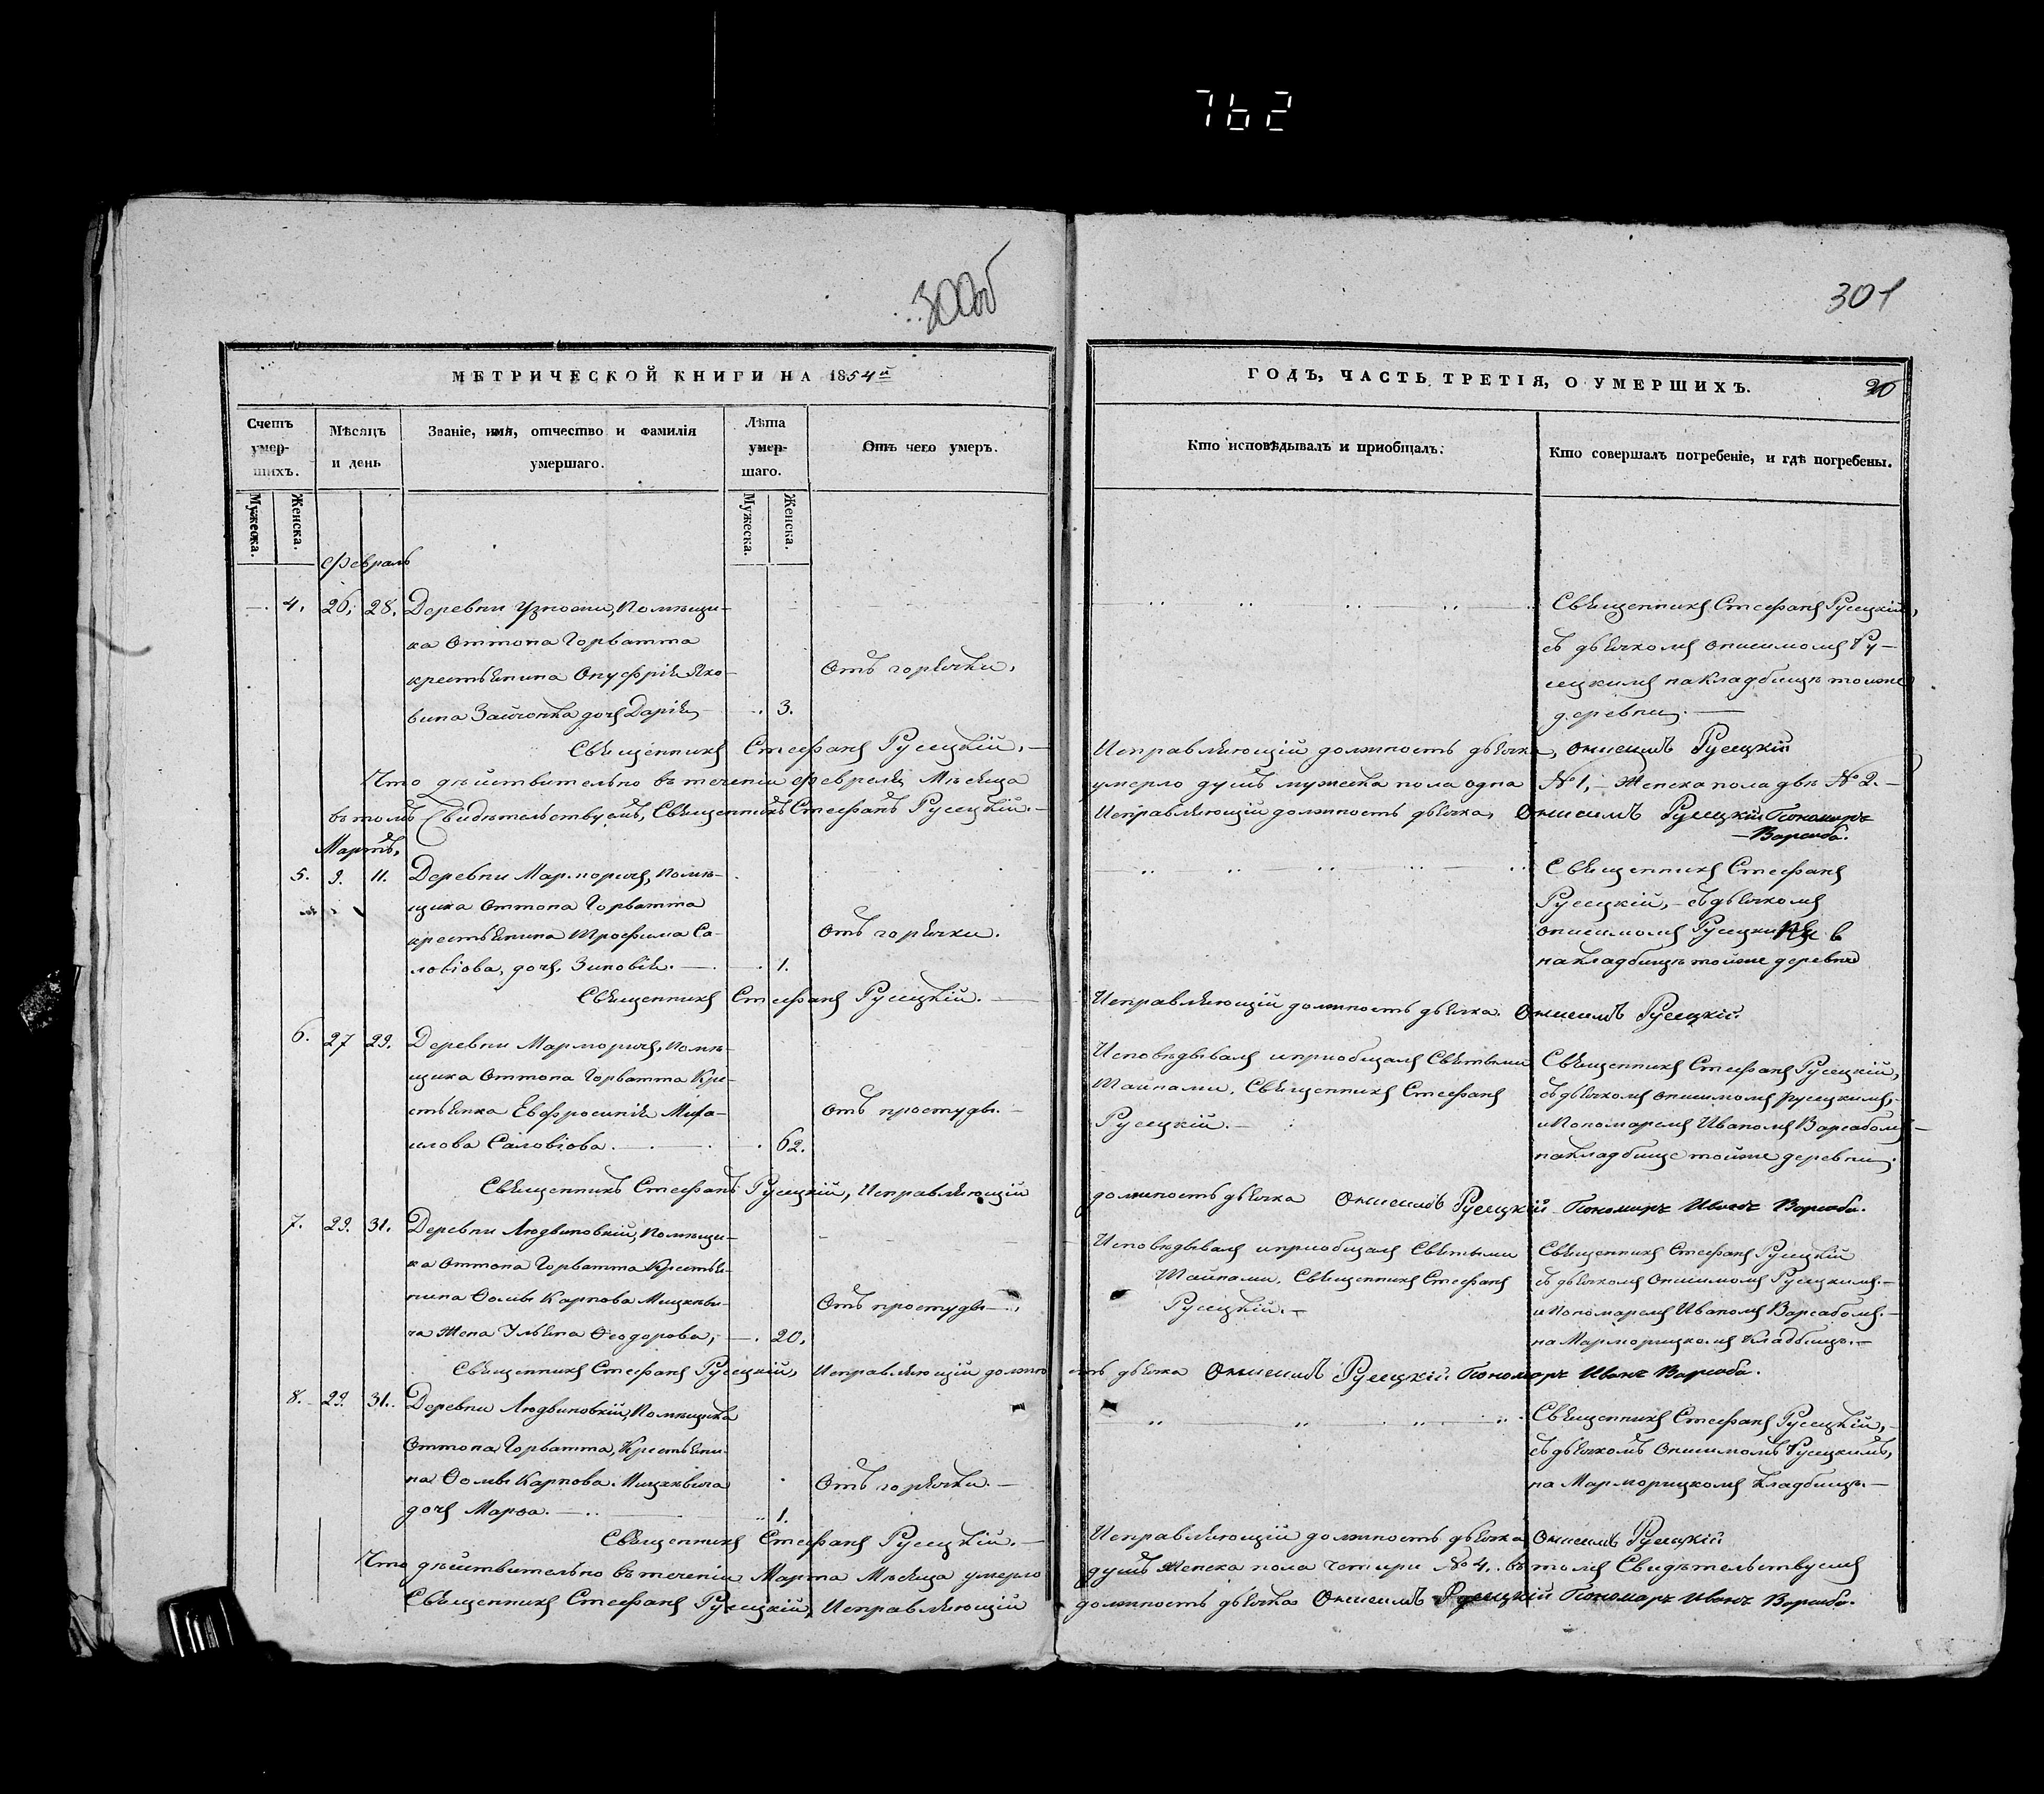 762
300об
301
МЕТРИЧЕСКОЙ КНИГИ НА 1854й
ГОДЪ, ЧАСТЬ ТРЕТІЯ, О УМЕРШИХЪ.
Счетъ умер-шихъ.
Мѣсяцъ и день
Званіе, имя, отчество и фамилія умершаго.
Лѣта умер-шаго.
Отъ чего умеръ.
Кто исповѣдывалъ и приобщалъ.
Кто совершалъ погребеніе, и гдѣ погребены.
Мужеска.
Женска.
Мужеска.
Женска.
Февраль
4. 26. 28. Деревни Узности, Помѣщи-
ка Оттона Горватта
крестьянина Онуфрія Яко-
вина Зайчонка дочь Дарія 3.
Отъ горячки.
Священникъ Стефанъ Русецкій,
съ дьячкомъ Онисимомъ Ру-
сецкимъ на кладбищѣ тойже
деревни.
Священникъ Стефанъ Русецкій. Исправляющій должность дьячка, Онисимъ Русецкій
Что дѣйствительно въ теченіи Февраля Мѣсяца умерло душъ мужеска пола одна №1, Женска пола двѣ №2.
въ томъ Свидѣтельствуемъ, Священникъ Стефанъ Русецкій. Исправляющій должность дьячка, Онисимъ Русецкій Пономарь
Варсаба.
Мартъ,
5. 9. 11. Деревни Марморичъ, помѣ-
щика Оттона Горватта
крестьянина Трофима Са-
ловіова, дочь Зиновія. 1.
Отъ горячки.
Священникъ Стефанъ
Русецкій, съ дьячкомъ
Онисимомъ Русецкимъ
на кладбищѣ тойже деревни
Священникъ Стефанъ Русецкій. Исправляющій должность дьячка. Онисимъ Русецкій.
6. 27 29. Деревни Марморичъ, помѣ-
щика Оттона Горватта Кре-
стьянка Евфросинія Миха-
илова Саловіова. 62.
Отъ простуды.
Исповѣдывалъ и приобщалъ Святыми
Тайнами, Священникъ Стефанъ
Русецкій.
Священникъ Стефанъ Русецкій,
съ дьячкомъ Онисимомъ Русецкимъ,
и Пономаремъ Иваномъ Варсабомъ
на кладбище тойже деревни.
Священникъ Стефанъ Русецкій, Исправляющій должность дьячка Онисимъ Русецкій Пономарь Иванъ Варсаба.
7. 29. 31. Деревни Людвиновкій, Помѣщи-
ка Оттона Горватта Крестья-
нина Ѳомы Карпова Мицкеви-
ча жена Ульяна Ѳеодорова, 20.
Отъ простуды
Исповѣдывалъ и приобщалъ Святыми
Тайнами, Священникъ Стефанъ
Русецкій.
Священникъ Стефанъ Русецкій
съ дьячкомъ Онисимомъ Русецкимъ.
и Пономаремъ Иваномъ Варсабомъ.
на Марморицкомъ кладбищѣ.
Священникъ Стефанъ Русецкій, Исправляющій должность дьячка Онисимъ Русецкій Пономарь Иванъ Варсаба.
8. 29. 31. Деревни Людвиновкій, Помѣщика
Оттона Горватта, Крестьяни-
на Ѳомы Карпова Мицкевича
дочь Марѳа. 1.
Отъ горячки.
Священникъ Стефанъ Русецкій,
съ дьячкомъ Онисимомъ Русецкимъ,
на Марморицкомъ кладбищѣ.
Священникъ Стефанъ Русецкій. Исправляющій должность дьячка Онисимъ Русецкій
Что дѣйствительно въ теченіи Марта Мѣсяца умерло душъ Женска пола четыри №4. въ томъ Свидѣтельствуемъ
Священникъ Стефанъ Русецкій, Исправляющій должность дьячка Онисимъ Русецкій Пономарь Иванъ Варсаба.